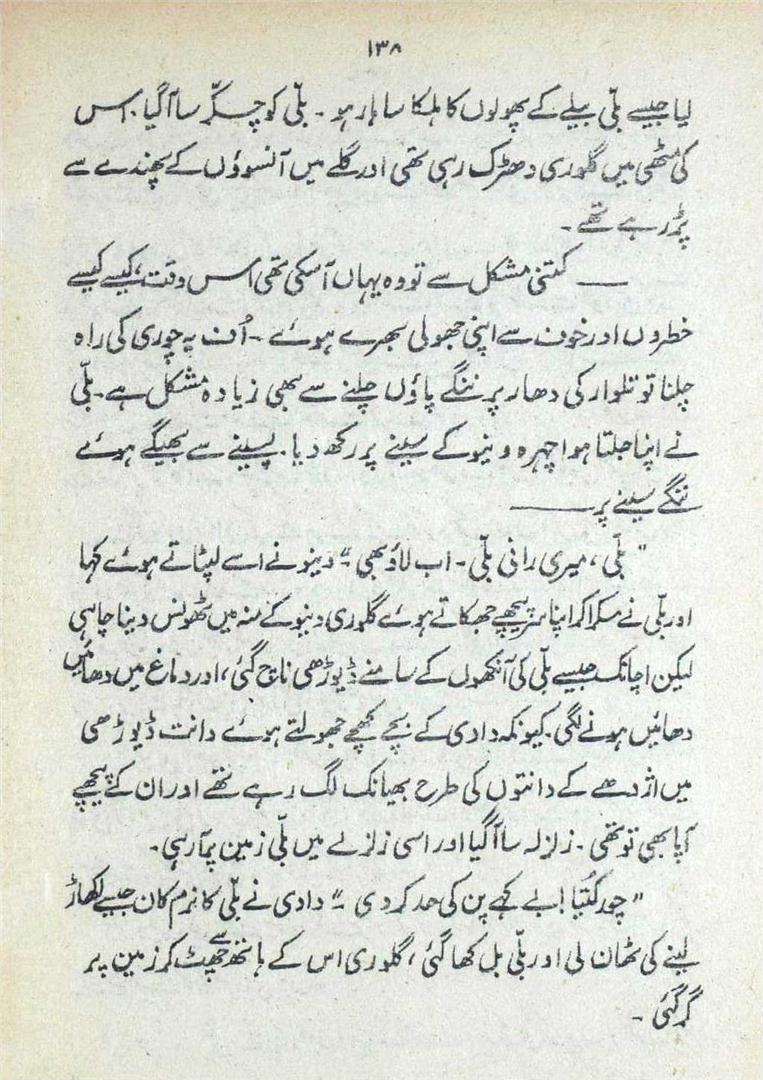 ۱۳۸
لیا جیسے بلّی بیلے کے پھولوں کا ہلکا سا ہار ہو ۔ بلّی کو چکّر سا آ گیا ۔ اس
کی مٹھی میں گلوری دھڑک رہی تھی اور گلے میں آنسوؤں کے پھندے سے
پڑ رہے تھے ۔
—— کتنی مشکل سے تو وہ یہاں آ سکی تھی اس وقت، کیسے کیسے
خطروں اور خوف سے اپنی جھولی بھرے ہوئے ۔ اُف یہ چوری کی راہ
چلنا تو تلوار کی دھار پر ننگے پاؤں چلنے سے بھی زیادہ مشکل ہے ۔ بلّی
نے اپنا جلتا ہوا چہرہ ونیو کے سینے پر رکھ دیا ۔ پسینے سے بھیگے ہوئے
ننگے سینے پر ——
" بلّی ، میری رانی بلّی ۔ اب لاؤ بھی ۔" دینو نے اسے لپٹاتے ہوئے کہا
اور بلّی نے مسکرا کر اپنا سر پیچھے جھکاتے ہوئے گلوری دینو کے منہ میں ٹھونس دینا چاہی
لیکن اچانک جیسے بلّی کی آنکھوں کے سامنے ڈیوڑھی ناچ گئی ، اور دماغ میں دھائیں
دھائیں ہونے لگی ۔ کیونکہ دادی کے بچے کھچے جھولتے ہوئے دانت ڈیوڑھی
میں اژدھے کے دانتوں کی طرح بھیانک لگ رہے تھے اور ان کے پیچھے
آپا بھی تو تھی ۔ زلزلہ سا آ گیا اور اسی زلزلے میں بلّی زمین پر آ رہی ۔
" چور کُتیا ! بے کہے پن کی حد کر دی ۔" دادی نے بلّی کا نرم کان جیسے اکھاڑ
لینے کی ٹھان لی اور بلّی بل کھا گئی ، گلوری اس کے ہاتھ سے چھٹ کر زمین پر
گر گئی ۔